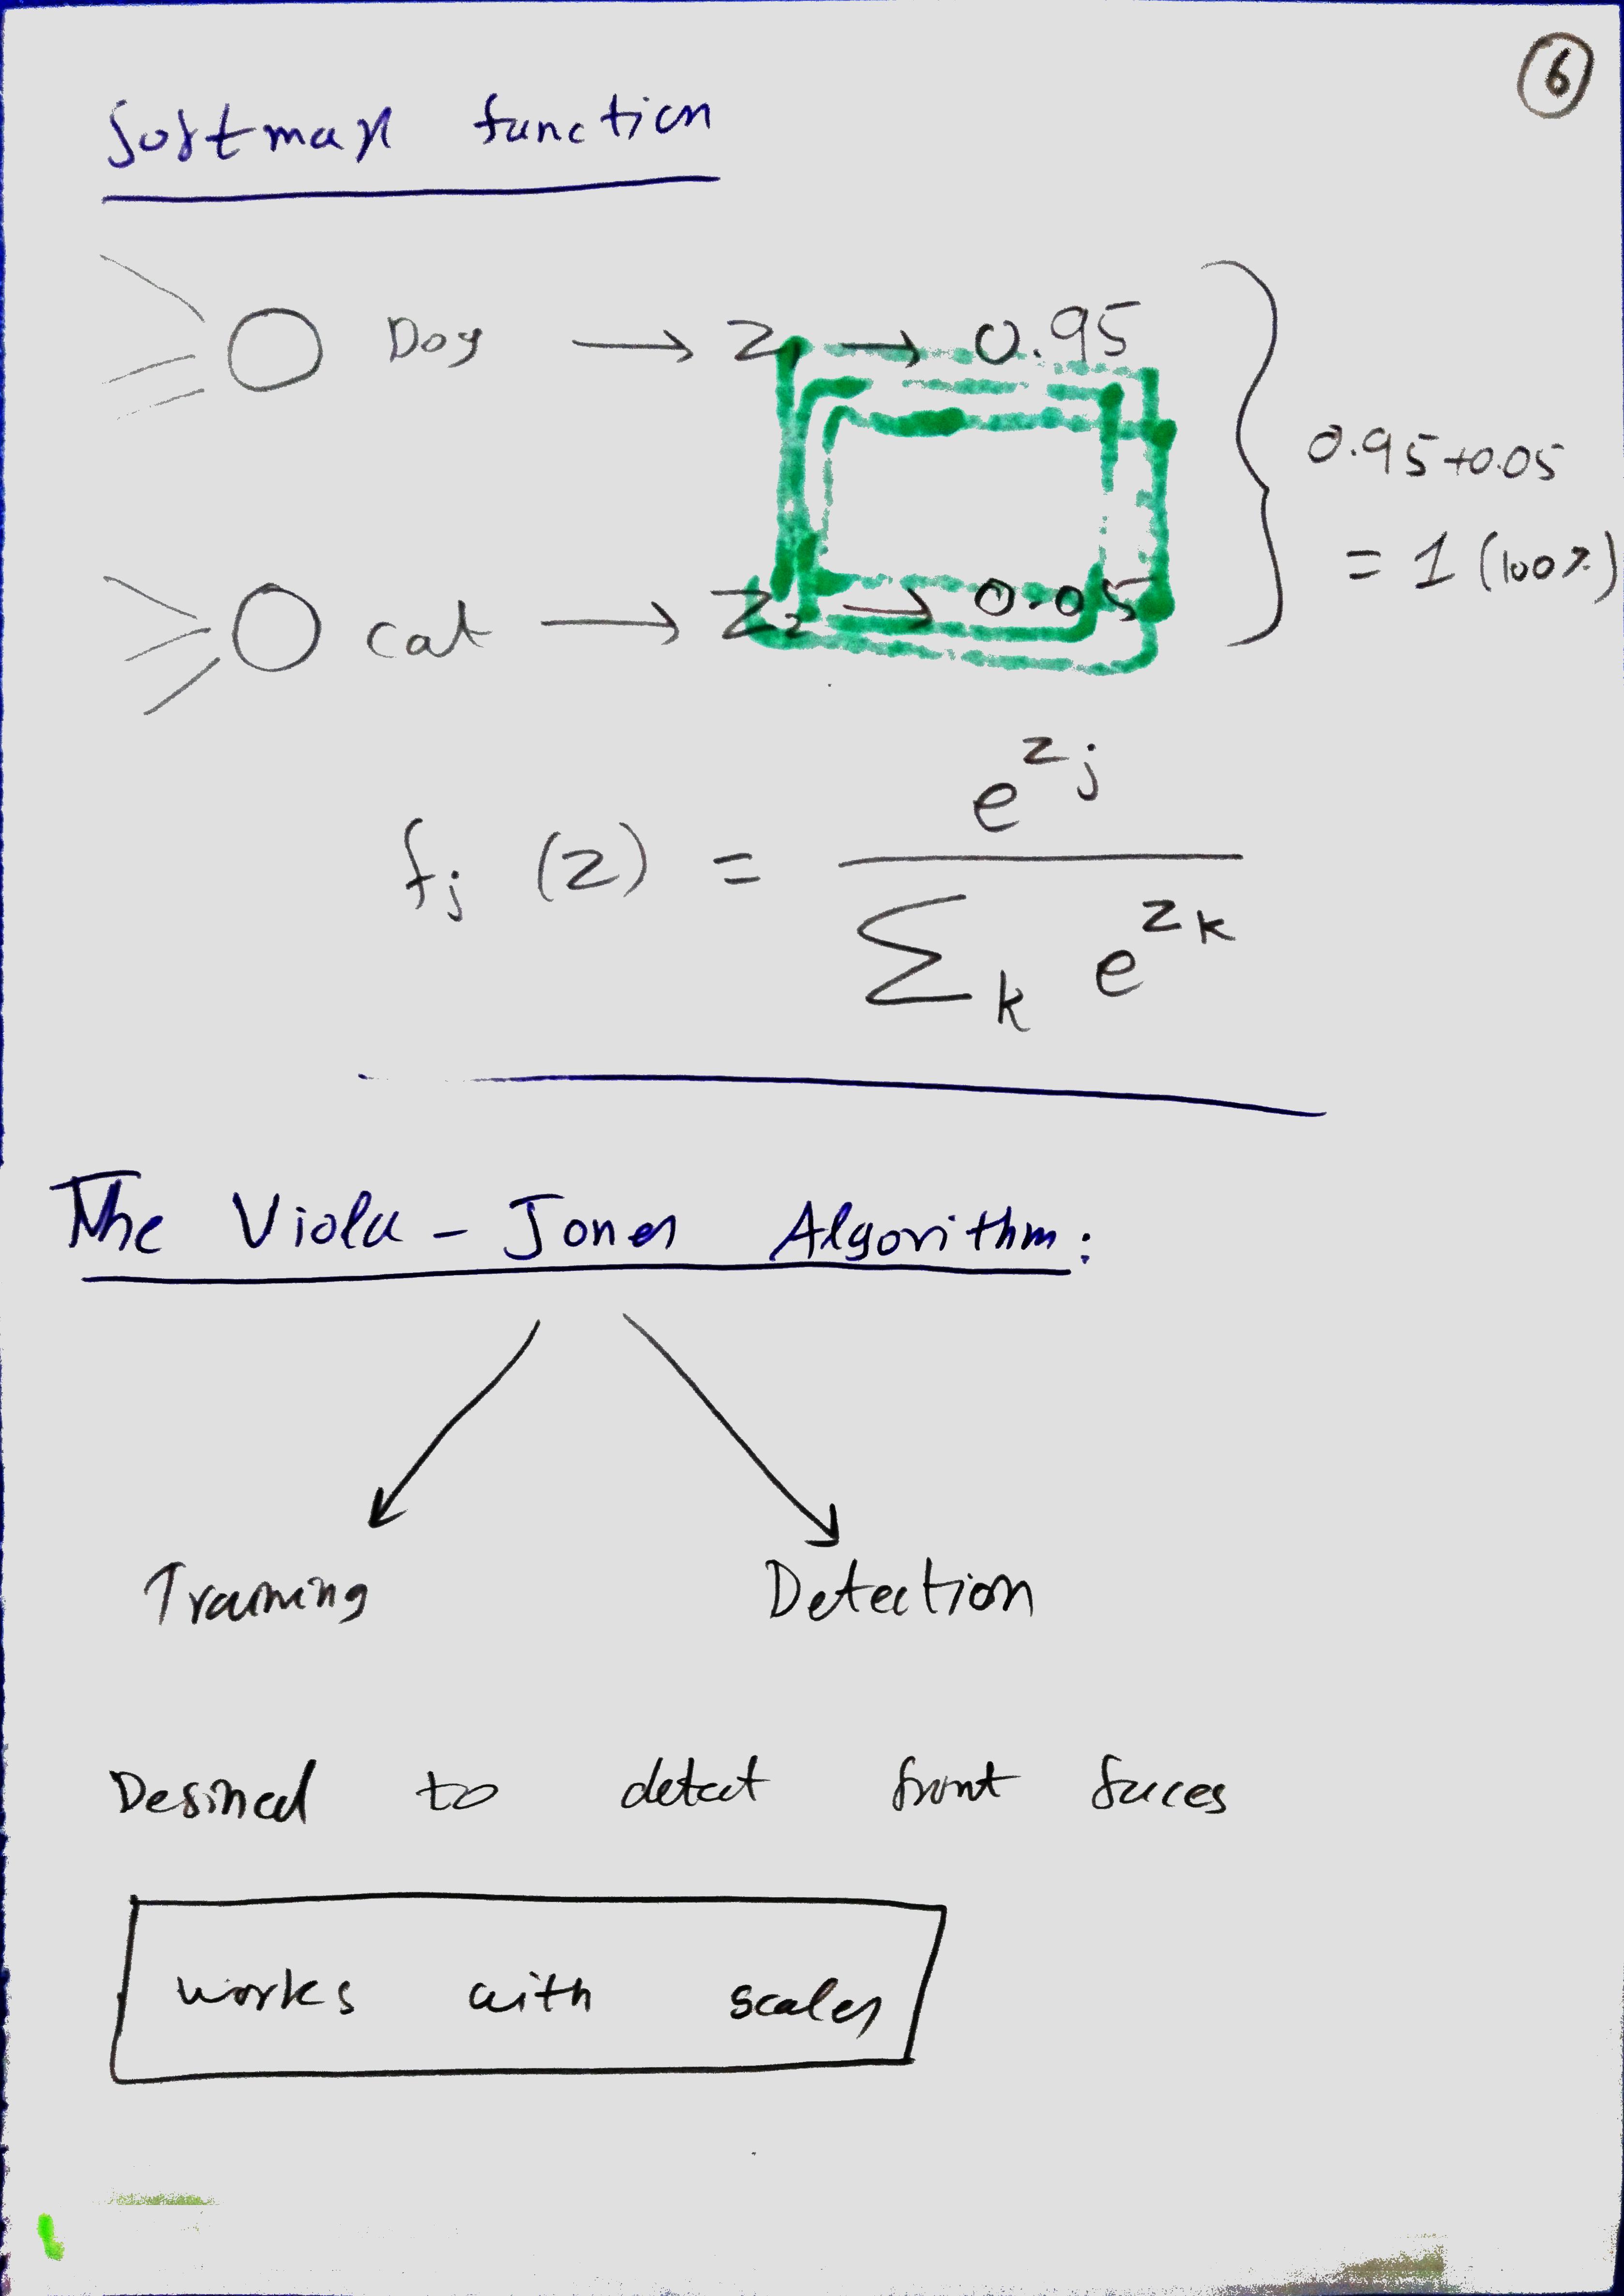 6
Softmax function
Dog → Z₁ → 0.95
0.95+0.05
= 1 (100%)
cat → Z₂ → 0.05
fⱼ (z) = e^zⱼ / Σₖ e^zₖ
The Viola - Jones Algorithm:
Training Detection
Desined to detect front faces
works with scales